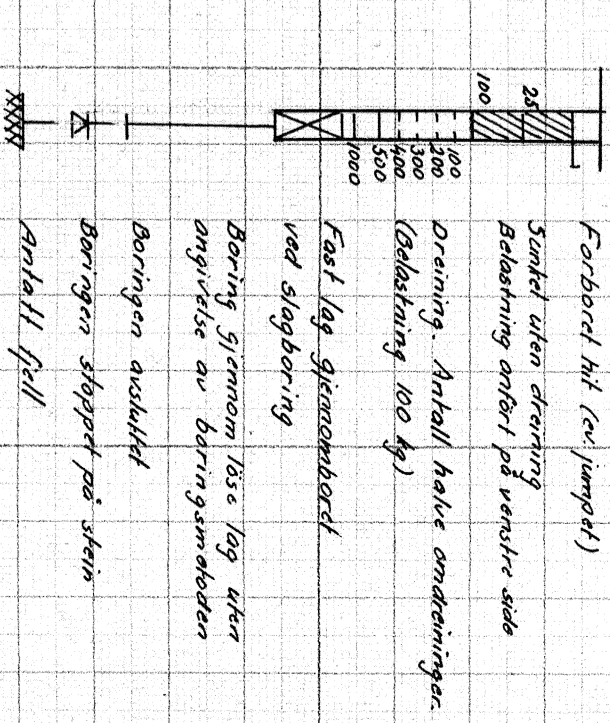 Forboret hit (ev. jumpet)
Sunket uten dreining
Belastning anfört på venstre side
25
100
Dreining. Antall halve omdreininger.
(Belastning 100 kg)
100
200
300
400
500
1000
Fast lag gjennomboret
ved slagboring
Boring gjennom löse lag uten
angivelse av boringsmetoden
Boringen avsluttet
Boringen stoppet på stein
Antatt fjell